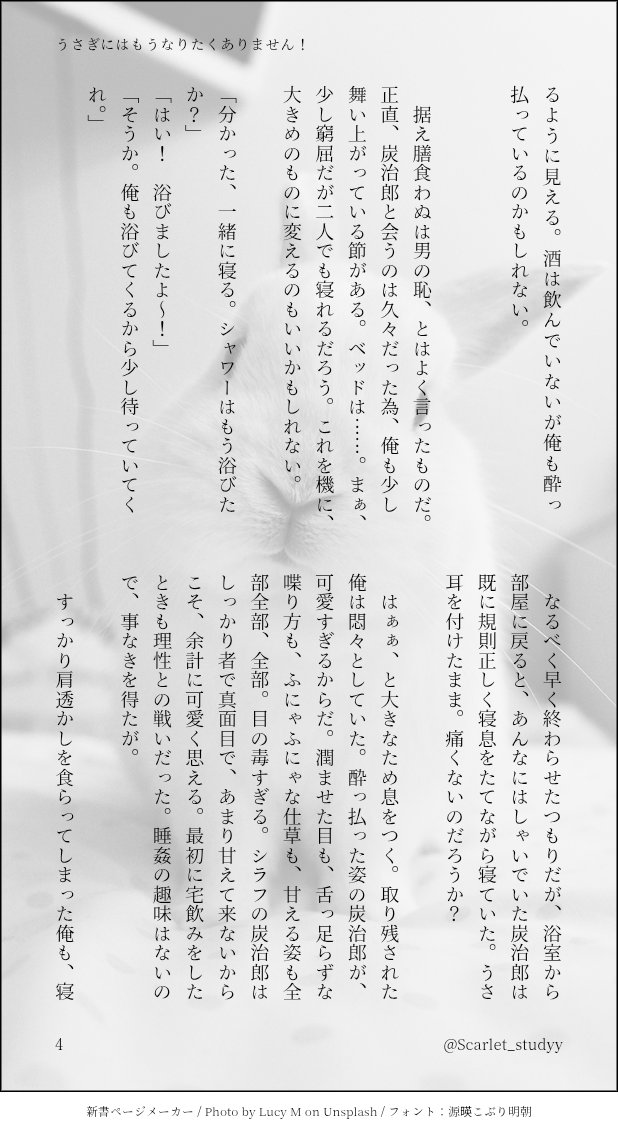 うさぎにはもうなりたくありません！
るように見える。酒は飲んでいないが俺も酔っ
払っているのかもしれない。
据え膳食わぬは男の恥、とはよく言ったものだ。
正直、炭治郎と会うのは久々だった為、俺も少し
舞い上がっている節がある。ベッドは……。まぁ、
少し窮屈だが二人でも寝れるだろう。これを機に、
大きめのものに変えるのもいいかもしれない。
「分かった、一緒に寝る。シャワーはもう浴びた
か？」
「はい！　浴びましたよ〜！」
「そうか。俺も浴びてくるから少し待っていてく
れ。」
なるべく早く終わらせたつもりだが、浴室から
部屋に戻ると、あんなにはしゃいでいた炭治郎は
既に規則正しく寝息をたてながら寝ていた。うさ
耳を付けたまま。痛くないのだろうか？
はぁぁ、と大きなため息をつく。取り残された
俺は悶々としていた。酔っ払った姿の炭治郎が、
可愛すぎるからだ。潤ませた目も、舌っ足らずな
喋り方も、ふにゃふにゃな仕草も、甘える姿も全
部全部、全部。目の毒すぎる。シラフの炭治郎は
しっかり者で真面目で、あまり甘えて来ないから
こそ、余計に可愛く思える。最初に宅飲みをした
ときも理性との戦いだった。睡姦の趣味はないの
で、事なきを得たが。
すっかり肩透かしを食らってしまった俺も、寝
4
@Scarlet_studyy
新書ページメーカー / Photo by Lucy M on Unsplash / フォント：源暎こぶり明朝